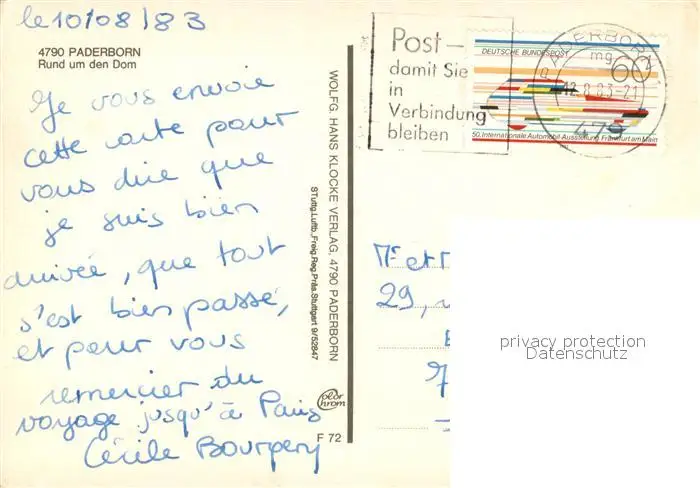 le 10/08/83
4790 PADERBORN
Rund um den Dom
Je vous envoie
cette carte pour
vous dire que
je suis bien
arrivée, que tout
s'est bien passé,
et pour vous
remercier du
voyage jusqu'à Paris
Cécile
F 72
WOLFG. HANS KLOCKE VERLAG, 4790 PADERBORN
STuttg.Luftb.,Freig.Reg.Präs.Stuttgart 9/52847
Color Chrom
Post –
damit Sie
in
Verbindung
bleiben
DEUTSCHE BUNDESPOST
60
50.Internationale Automobil-Ausstellung Frankfurt am Main
PADERBORN 1
mg
12.8.83-21
479
Mr et
29,
7
privacy protection
Datenschutz